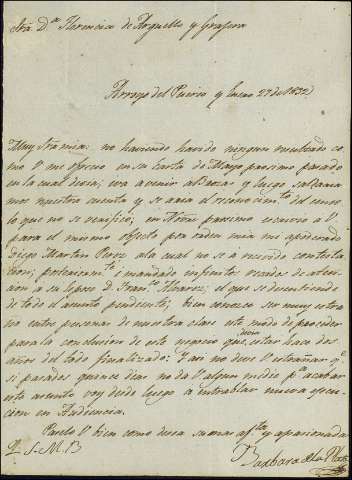 Sra Da Herencia de Arguello y Grafera
Arroyo del Puerco y Enero 27 de 1832
Muy Sra mia: no haviendo havido ningun resultado co
mo V me ofrecio en su Carta de Mayo proximo pasado
en la cual decia, iva a venir al y luego saldaria
mos nuestra cuenta y se aria el reconocimto del censo
lo que no se verificó; en Nbre proximo escrivio a V
para el mismo efecto por orden mia me apoderado
Diego Martin Perez a la cual no se a recivido contesta
cion; posteriormte é mandado infinitos recados de aten
cion a su esposo D. Franco Alvarez, el que se desentiende
de todo el asunto pendiente; bien conozco ser muy estra
ño entre personas de nuestra clase este modo de proceder
para la conclusion de este negocio que devia estar hace dos
años del todo finalizado: Y asi no deve V estrañar qe
si pasados quince dias no da V algun medio pa acabar
este asunto voy desde luego a entablar nueva ejecu
cion en Audiencia.
Paselo V bien como desea su mas afta y apasionada
Q. S. M. B
Barbara de la Plata